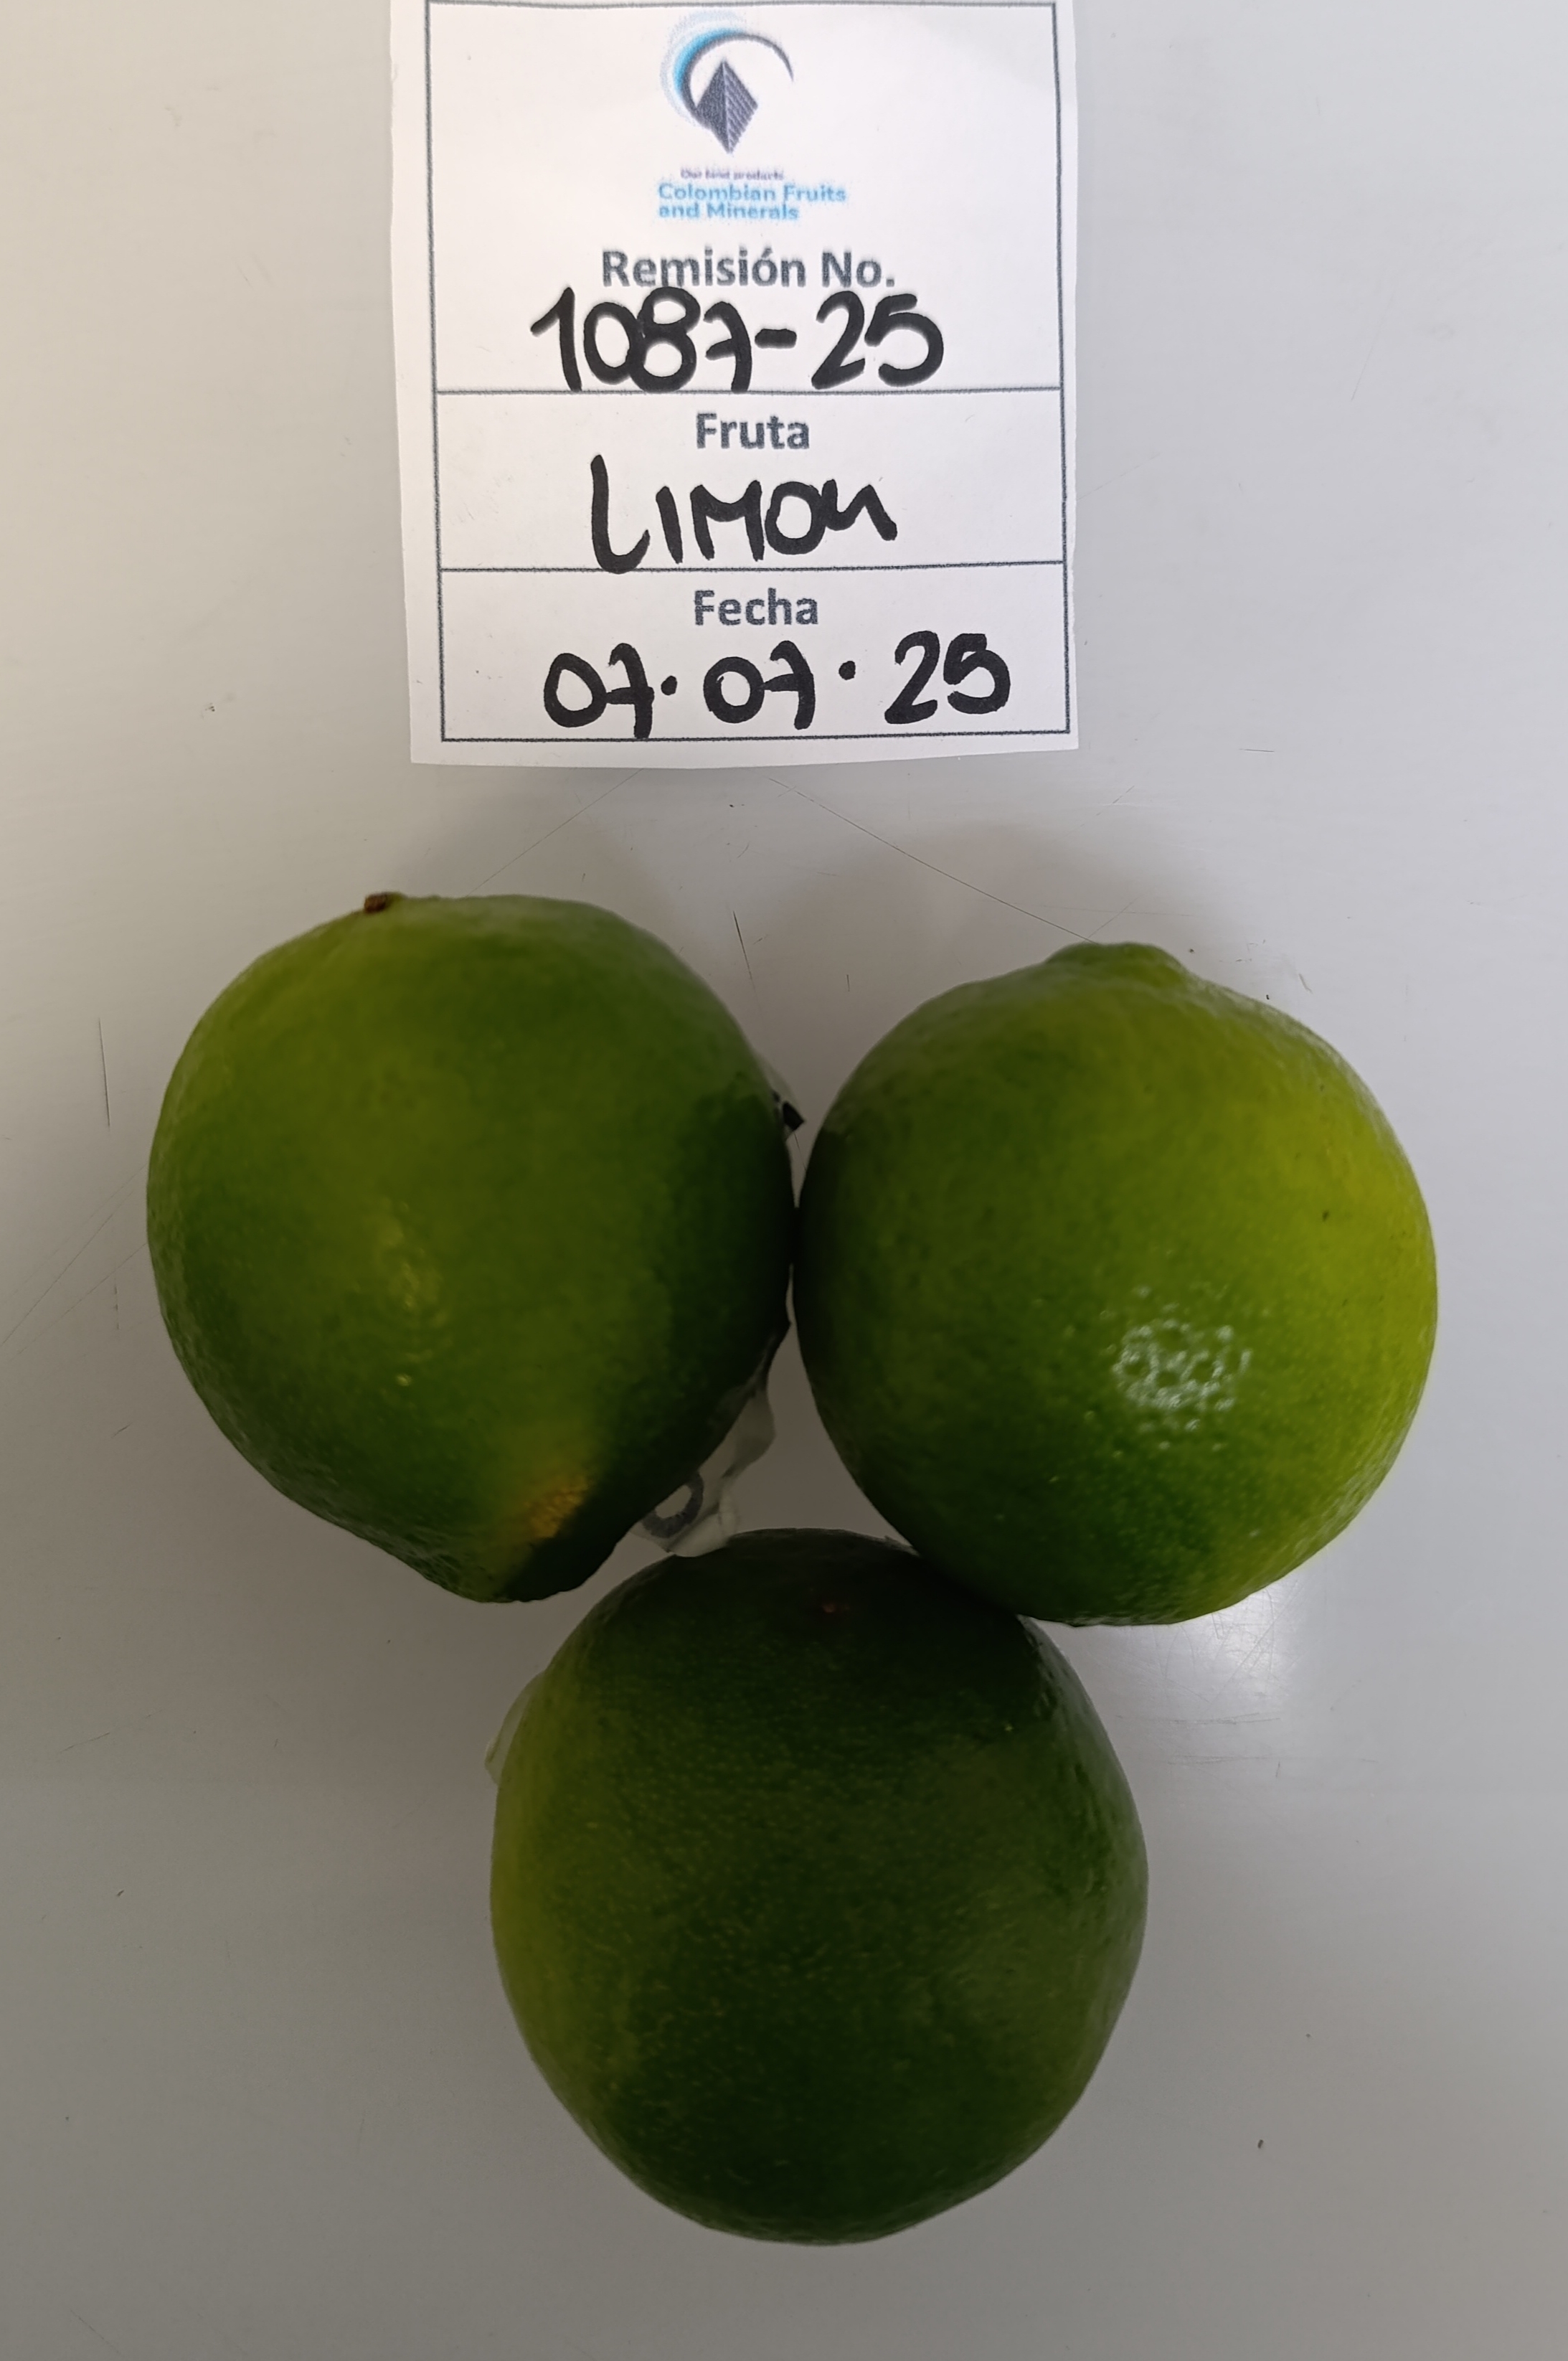 Our best products
Colombian Fruits
and Minerals
Remisión No.
1087-25
Fruta
LIMON
Fecha
07·07·25